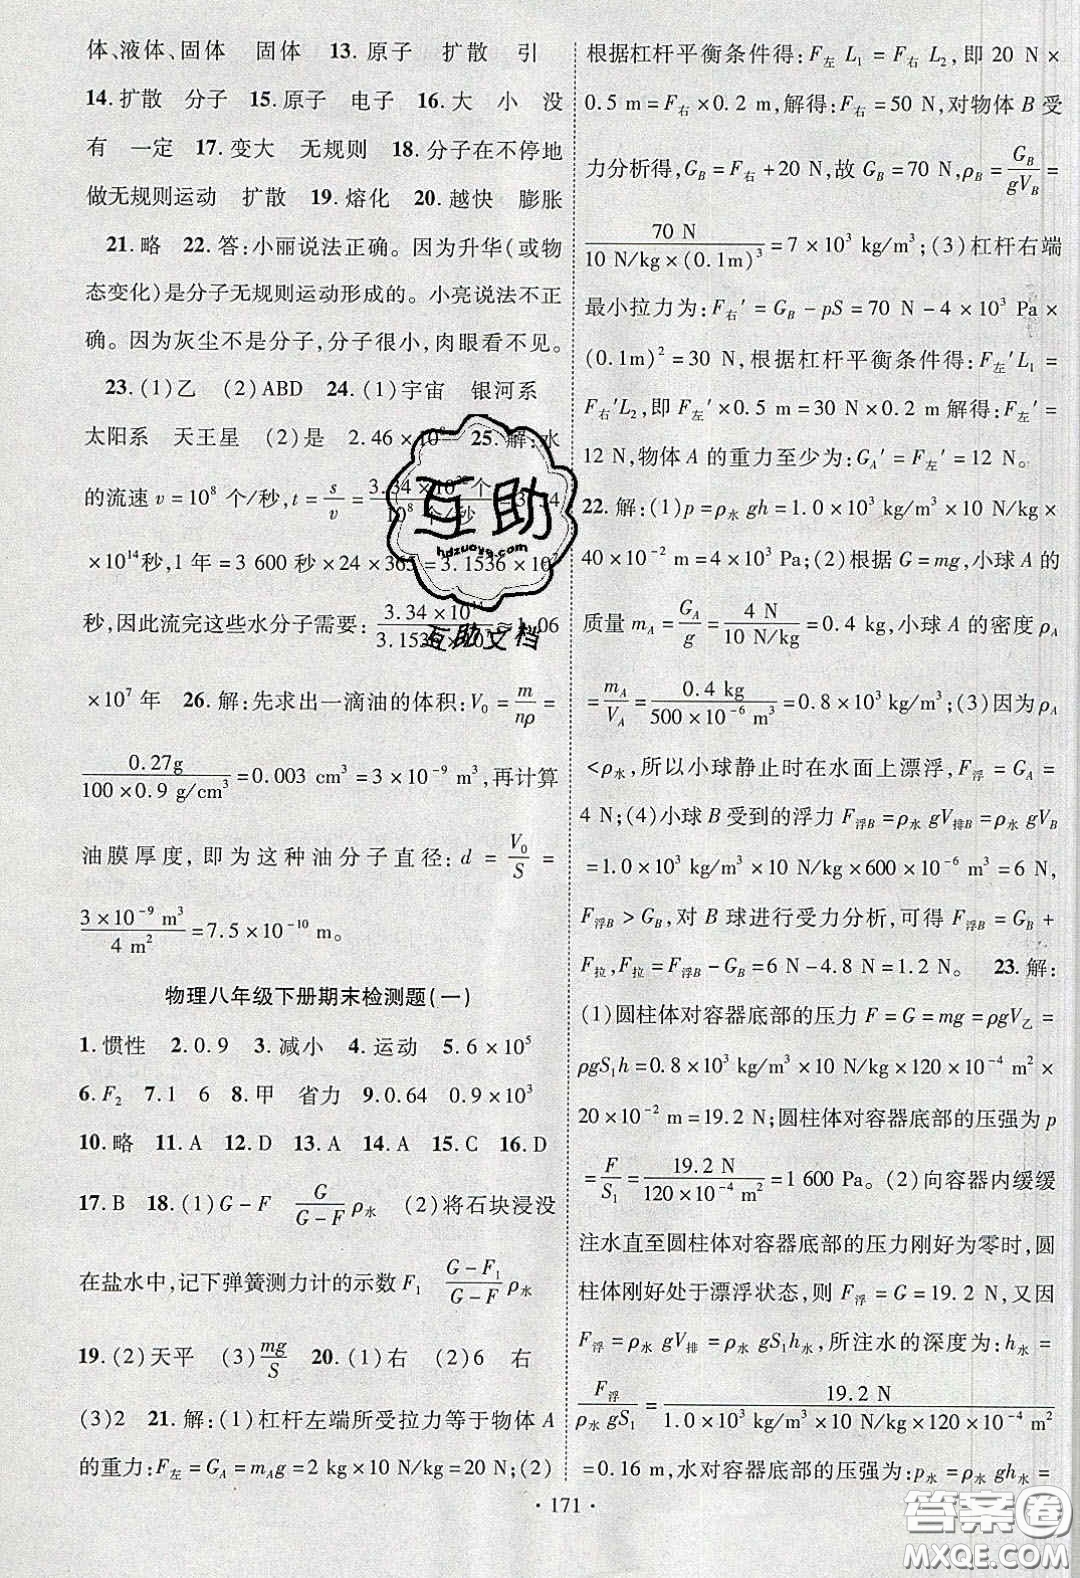 体、液体、固体　固体　13.原子　扩散　引
14.扩散　分子　15.原子　电子　16.大　小　没
有　一定　17.变大　无规则　18.分子在不停地
做无规则运动　扩散　19.熔化　20.越快　膨胀
21.略　22.答:小丽说法正确。因为升华(或物
态变化)是分子无规则运动形成的。小亮说法不正
确。因为灰尘不是分子,分子很小,肉眼看不见。
23.(1)乙　(2)ABD　24.(1)宇宙　银河系
太阳系　天王星　(2)是　2.46×10　25.解:水
的流速 v=10⁸ 个/秒,t=s/v=3.34×10 个/10⁸ 个/秒=3.34
×10¹⁴秒,1 年=3 600 秒×24×365=3.1536×10⁷
秒,因此流完这些水分子需要:3.34×10¹⁴/3.1536×10⁷≈1.06
×10⁷ 年　26.解:先求出一滴油的体积:V₀=m/nρ=
0.27g/(100×0.9 g/cm³)=0.003 cm³=3×10⁻⁹ m³,再计算
油膜厚度,即为这种油分子直径:d=V₀/S=
3×10⁻⁹ m³/4 m²=7.5×10⁻¹⁰ m。
物理八年级下册期末检测题(一)
1.惯性　2.0.9　3.减小　4.运动　5.6×10⁵
6.F₂　7.1　6　8.甲　省力　9.0.64　0.9×10³
10.略　11.A　12.D　13.A　14.A　15.C　16.D
17.B　18.(1)G-F　G/(G-F) ρ水　(2)将石块浸没
在盐水中,记下弹簧测力计的示数 F₁　(G-F₁)/(G-F) ρ水
19.(2)天平　(3)mg/S　20.(1)右　(2)6　右
(3)2　21.解:(1)杠杆左端所受拉力等于物体 A
的重力:F左=G_A=m_A g=2 kg×10 N/kg=20 N;(2)
根据杠杆平衡条件得:F左 L₁=F右 L₂,即 20 N×
0.5 m=F右×0.2 m,解得:F右=50 N,对物体 B 受
力分析得,G_B=F右+20 N,故 G_B=70 N,ρ_B=G_B/gV_B=
70 N/(10 N/kg×(0.1m)³)=7×10³ kg/m³;(3)杠杆右端
最小拉力为:F右′=G_B-pS=70 N-4×10³ Pa×
(0.1m)²=30 N,根据杠杆平衡条件得:F左′L₁=
F右′L₂,即 F左′×0.5 m=30 N×0.2 m 解得:F左′=
12 N,物体 A 的重力至少为:G_A′=F左′=12 N。
22.解:(1)p=ρ水 gh=1.0×10³ kg/m³×10 N/kg×
40×10⁻² m=4×10³ Pa;(2)根据 G=mg,小球 A 的
质量 m_A=G_A/g=4 N/(10 N/kg)=0.4 kg,小球 A 的密度 ρ_A
=m_A/V_A=0.4 kg/(500×10⁻⁶ m³)=0.8×10³ kg/m³;(3)因为 ρ_A
<ρ水,所以小球静止时在水面上漂浮,F浮=G_A=
4 N;(4)小球 B 受到的浮力 F浮B=ρ水 gV排B=ρ水 gV_B
=1.0×10³ kg/m³×10 N/kg×600×10⁻⁶ m³=6 N,
F浮B>G_B,对 B 球进行受力分析,可得 F浮B=G_B+
F拉,F拉=F浮B-G_B=6 N-4.8 N=1.2 N。　23.解:
(1)圆柱体对容器底部的压力 F=G=mg=ρgV乙=
ρgS₁h=0.8×10³ kg/m³×10 N/kg×120×10⁻⁴ m²×
20×10⁻² m=19.2 N;圆柱体对容器底部的压强为 p
=F/S₁=19.2 N/(120×10⁻⁴ m²)=1 600 Pa。(2)向容器内缓缓
注水直至圆柱体对容器底部的压力刚好为零时,圆
柱体刚好处于漂浮状态,则 F浮=G=19.2 N,又因
F浮=ρ水 gV排=ρ水 gS₁h水,所注水的深度为:h水=
F浮/(ρ水 gS₁)=19.2 N/(1.0×10³ kg/m³×10 N/kg×120×10⁻⁴ m²)
=0.16 m,水对容器底部的压强为:p水=ρ水 gh水=
·171·
互助
hdzuoye.com
互助文档
答案圈
MXQE.COM